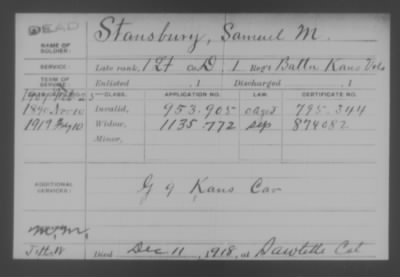 DEAD
NAME OF SOLDIER: Stansbury, Samuel M.
SERVICE: Late rank, 1 Lt Co. D, 1 Reg't Battn Kans Vols
TERM OF SERVICE: Enlisted , 1 Discharged , 1
CLASS. APPLICATION NO. LAW. CERTIFICATE NO.
1890 Nov 10 Invalid, 953.905 795.344
1919 10 Widow, 1135.772 874082
Minor,
ADDITIONAL SERVICES: G 9 Kans Cav
J.H.W Died Dec 11, 1918, at Cal